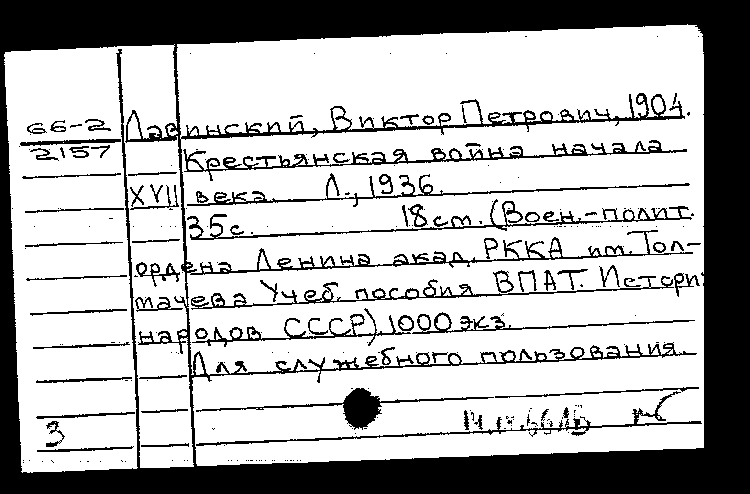 66-2
2157
Лавинский, Виктор Петрович, 1904.
Крестьянская война начала
XVII века. Л., 1936.
35с. 18 см. (Воен.-полит.
ордена Ленина акад. РККА им. Тол-
мачева Учеб. пособия ВПАТ. Истори
народов СССР). 1000 экз.
Для служебного пользования.
3